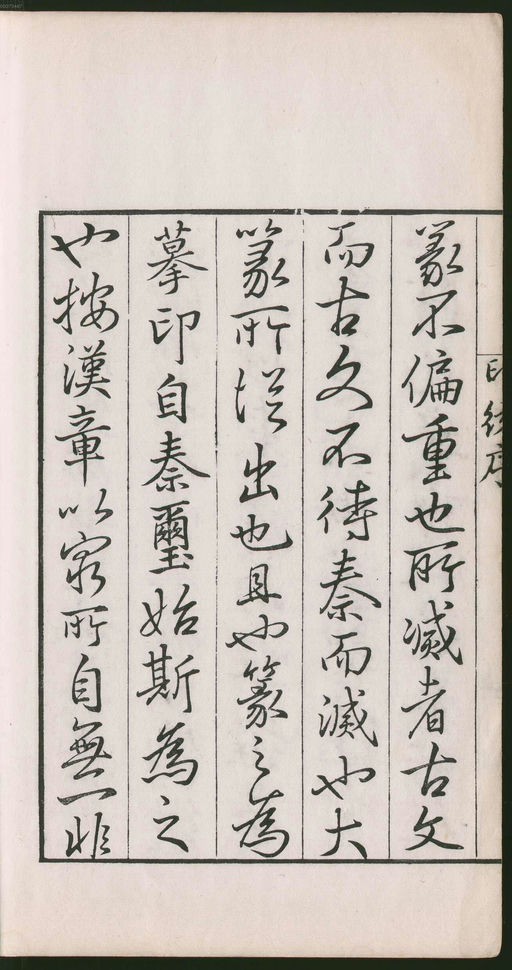 印 序
篆不偏重也所滅者古文
而古文不待秦而滅也大
篆所從出也且也篆之為
摹印自秦璽始斯為之
也按漢章以窮所自無一非